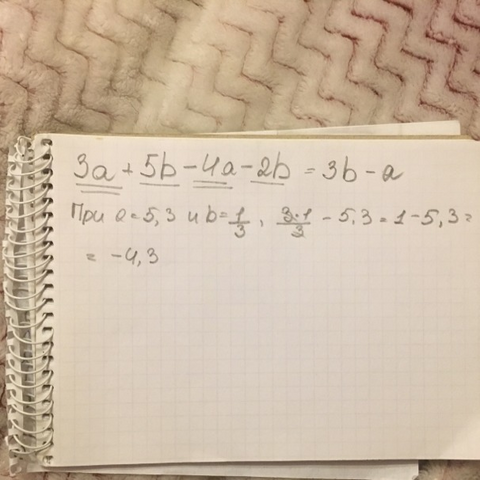 3a + 5b - 4a - 2b = 3b - a
При a = 5,3 и b = 1/3, 3·1/3 - 5,3 = 1 - 5,3 =
= -4,3